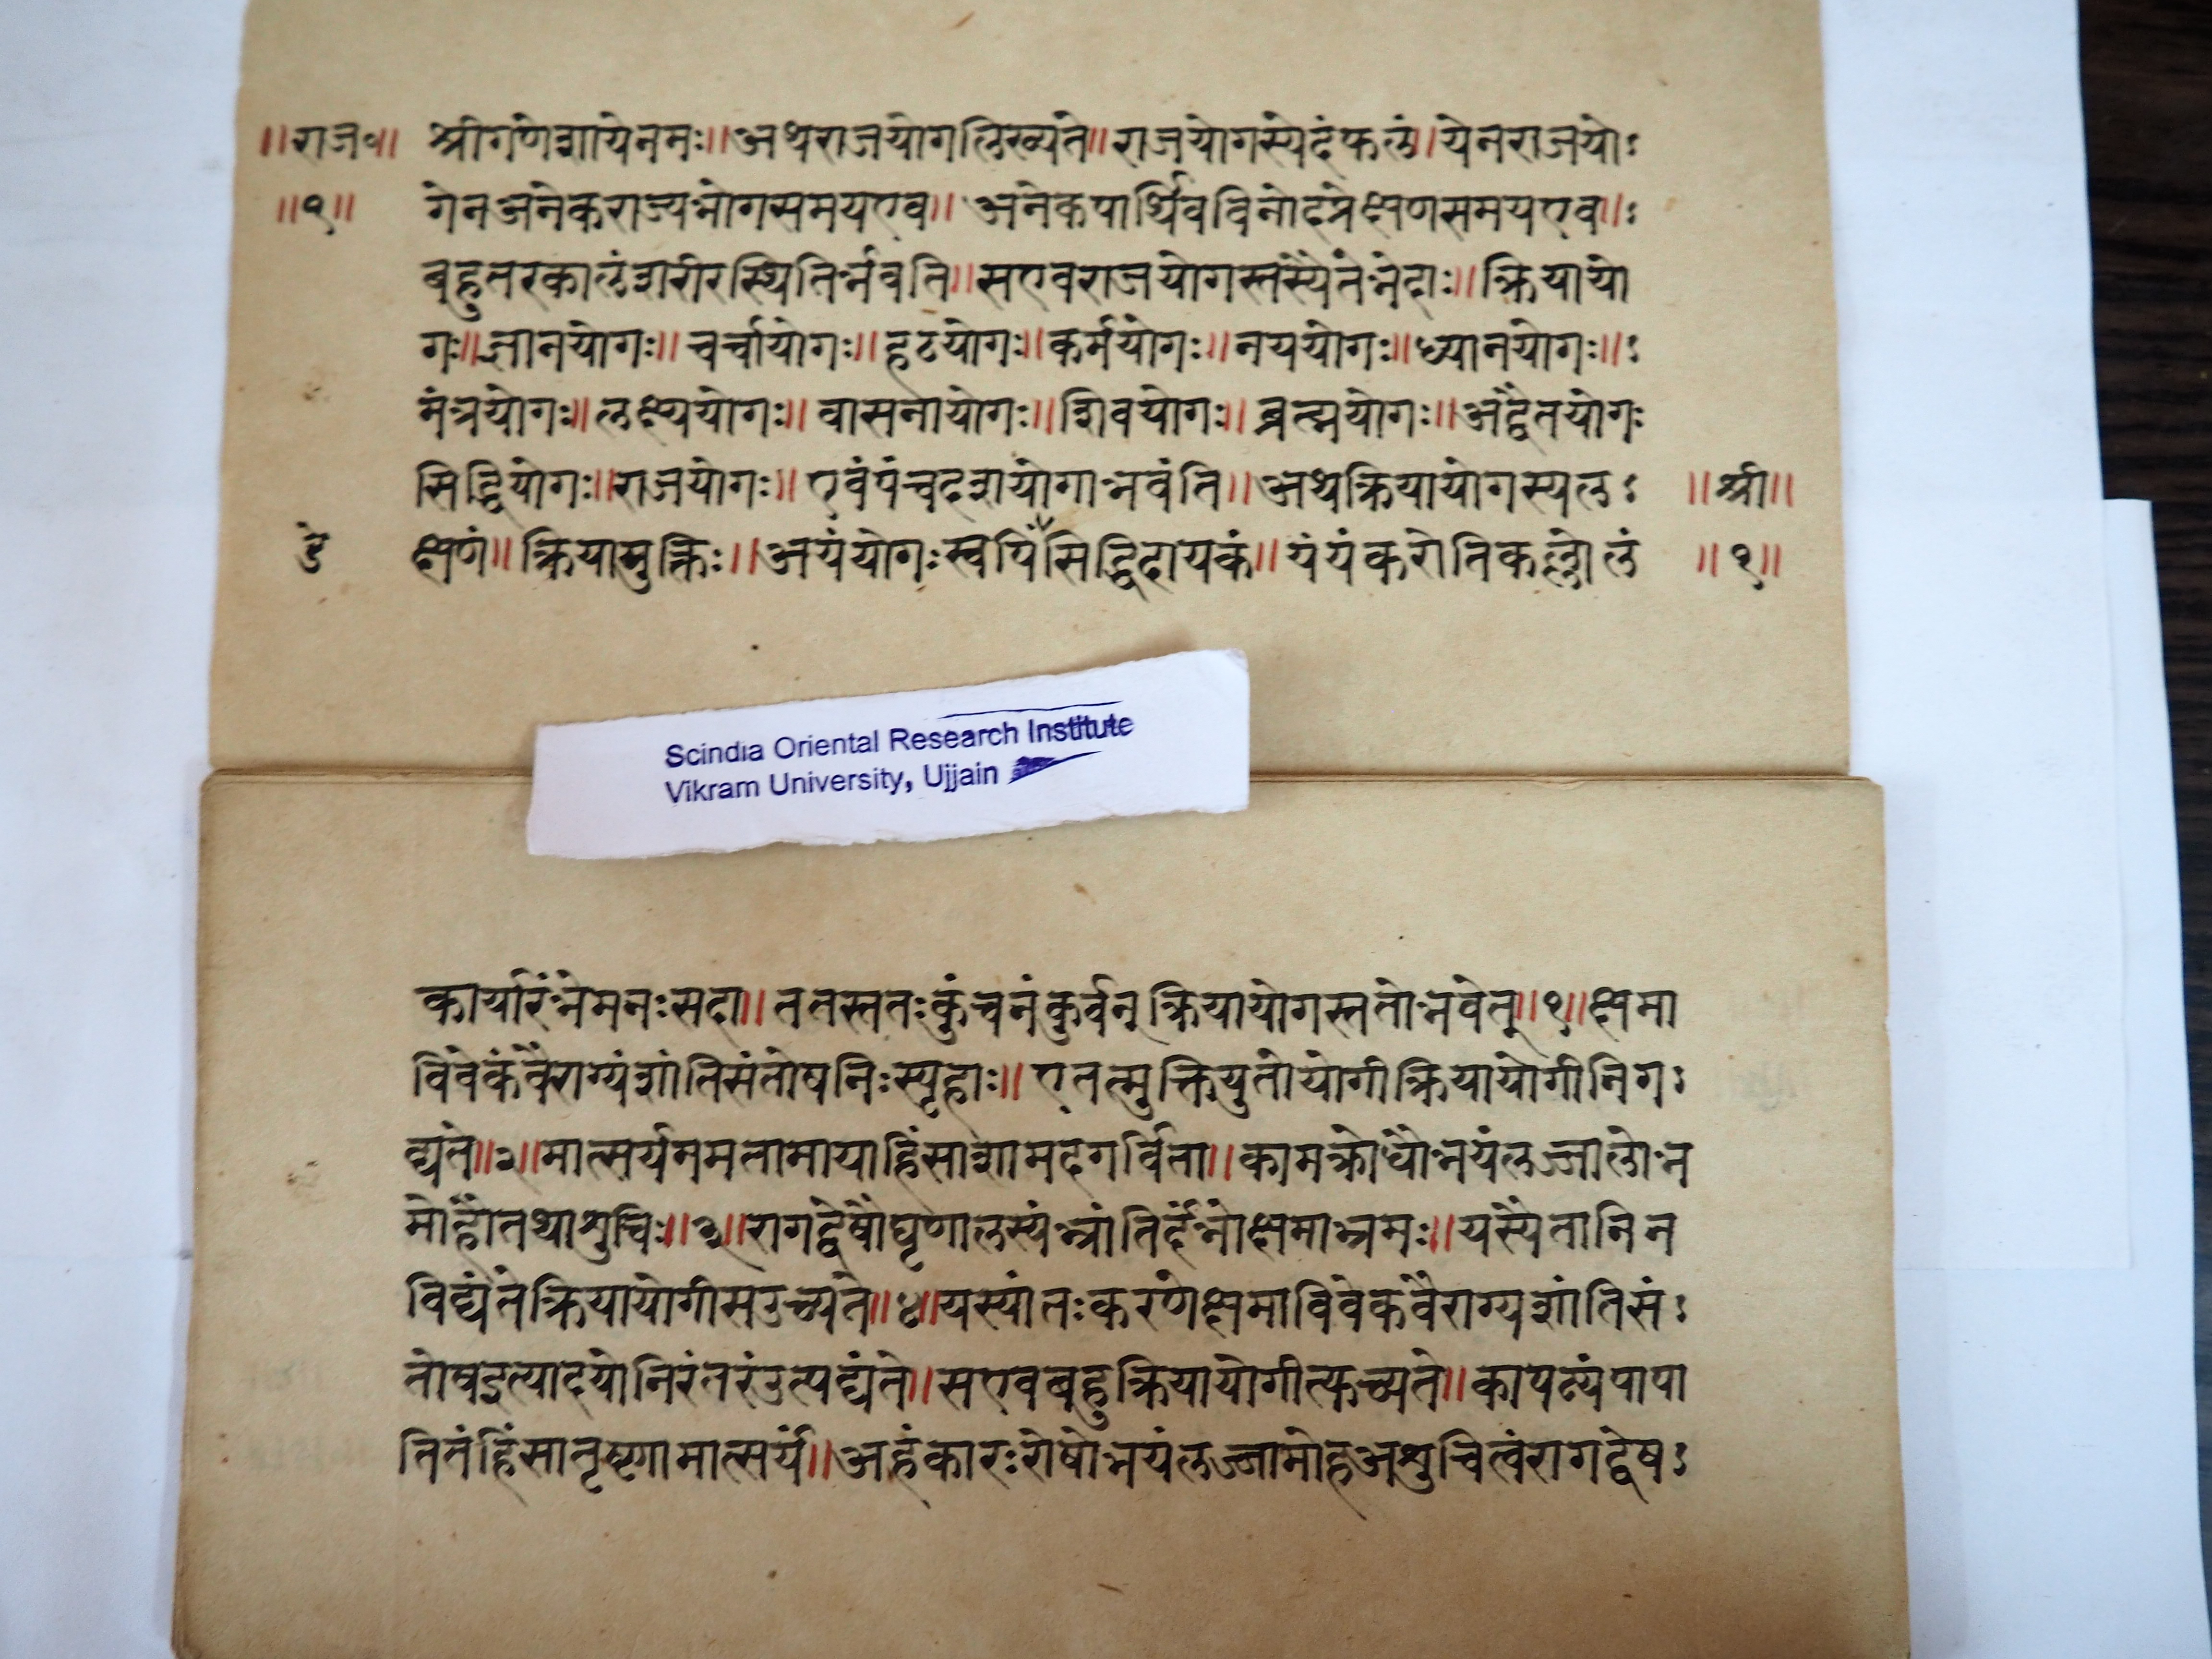 ॥राज०॥ श्रीगणेशायेनमः॥अथराजयोगलिख्यते॥राजयोगस्येदंफलं॥येनराजयोः
॥१॥ गेनअनेकराज्यभोगसमयएव॥ अनेकपार्थिवविनोदप्रेक्षणसमयएव॥ः
बहुतरकालंशरीरस्थितिर्भवति॥सएवराजयोगस्तस्यैतेभेदाः॥क्रियायो
गः॥ज्ञानयोगः॥चर्चायोगः॥हठयोगः॥कर्मयोगः॥नययोगः॥ध्यानयोगः॥ः
मंत्रयोगः॥लक्ष्ययोगः॥वासनायोगः॥शिवयोगः॥ब्रह्मयोगः॥अद्वैतयोगः
सिद्धियोगः॥राजयोगः॥एवंपंचदशयोगाभवंति॥अथक्रियायोगस्यलः ॥श्री॥
डे क्षणं॥क्रियामुक्तिः॥अयंयोगःस्वपिंसिद्धिदायकं॥यंयंकरोतिकल्लोलं ॥१॥
Scindia Oriental Research Institute
Vikram University, Ujjain
कार्यारंभेमनःसदा॥ततस्ततःकुंचनंकुर्वन्क्रियायोगस्ततोभवेत्॥१॥क्षमा
विवेकंवैराग्यंशांतिसंतोषनिःस्पृहाः॥एतत्मुक्तियुतोयोगीक्रियायोगीनिगः
द्यते॥२॥मात्सर्यममतामायाहिंसाशामदगर्विता॥कामक्रोधौभयंलज्जालोभ
मोहौतथाशुचिः॥३॥रागद्वेषौघृणालस्यंभ्रांतिर्दंभोक्षमाभ्रमः॥यस्यैतानिन
विद्यंतेक्रियायोगीसउच्यते॥४॥यस्यांतःकरणेक्षमाविवेकवैराग्यशांतिसंः
तोषइत्यादयोनिरंतरंउत्पद्यंते॥सएवबहुक्रियायोगीत्कच्यते॥कापट्यंपापा
तितंहिंसातृष्णामात्सर्यं॥अहंकारःरोषोभयंलज्जामोहअशुचित्वंरागद्वेषः